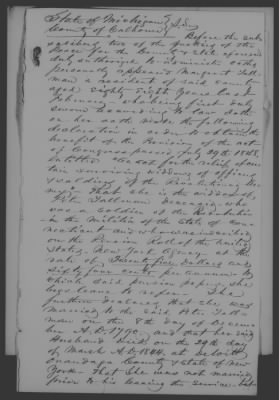 State of Michigan
County of Calhoun } S.S.
Before the sub
scribing two of the Justices of the
Peace for the County & State aforesaid
duly authorized to administer oaths
personally appeared Margaret Tall
man a resident of said County
aged Eighty Eight Years last
February who being first duly
sworn according to law doth
on her oath make the following
declaration in order to obtain the
benefit of the Provision of the act
of Congress passed July 29th 1848.
entitled An act for the relief of cer
tain surviving widows of officers
& soldiers of the Revolutionary Ar
my. That she is the widow of
Peter Tallman deceased, who
was a Soldier of the Revolution
in the Militia of the State of Conn
necticut and who was inscribed
on the Pension Roll of the United
States, New York agency, at the
rate of Twenty five dollars and
sixty four cents per annum to
which said pension papers she
begs leave to refer. She
further declares that she was
Married to the said Peter Tall
man on the 8th day of Decem
ber A.D. 1790 and that her said
Husband died on the 29th day
of March A.D. 1844. at
Onondaga County & State of New
York. That she was not married
prior to his leaving the service but